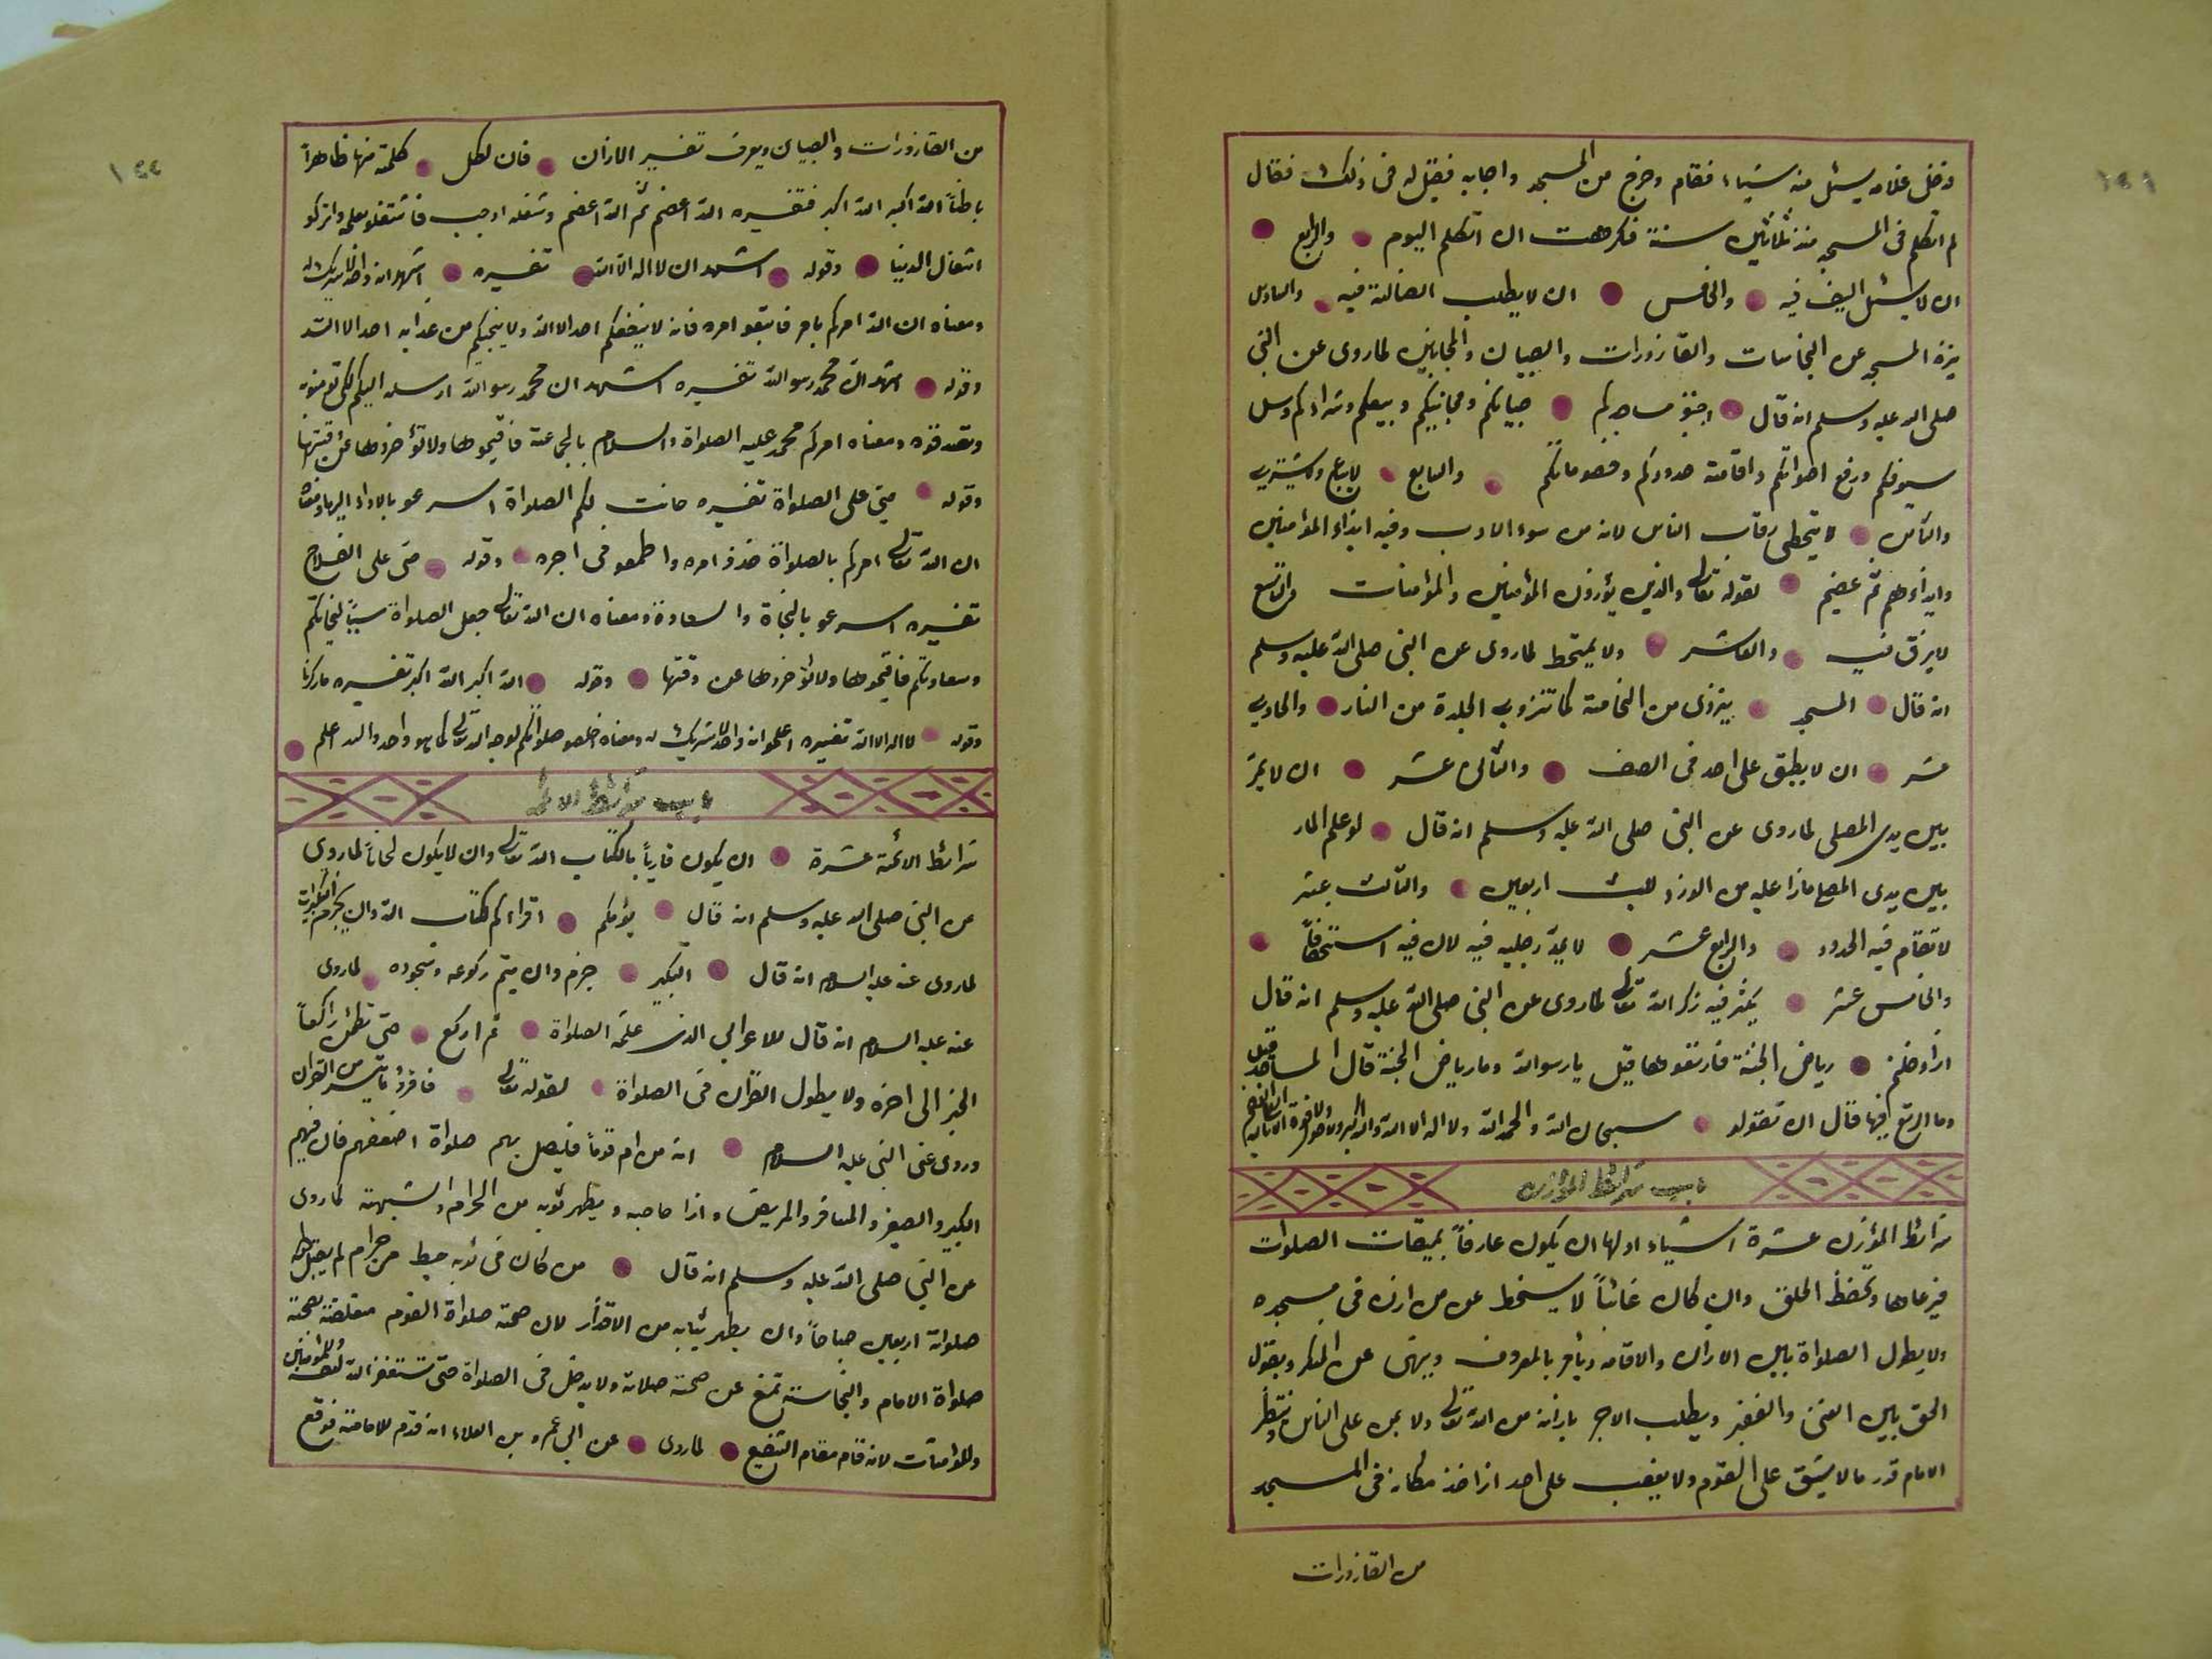 دخل غلامه يسئل منه شياء فقام وخرج من المسجد واجابه فقيل له فى ذلك فقال
لم اتكلم فى المسجد منذ ثلاثين سنة فكرهت ان اتكلم اليوم والرابع
ان لا يسئل السيف فيه والخامس ان لا يطلب الضالة فيه والسادس
ينزه المسجد عن النجاسات والقازورات والصبيان والمجانين لماروى عن النبى
صلى الله عليه وسلم انه قال اجنبو مساجدكم صبيانكم ومجانينكم وبيعكم وشراءكم وسل
سيوفكم ورفع اصواتكم واقامة حدودكم وخصوماتكم والسابع لا يباع ولا يشترى
والثامن لا يتخطى رقاب الناس لانه من سوء الادب وفيه ايذاء المؤامنين
وايذاؤهم ثم عضيم لقوله تعالى والذين يؤزون المؤمنين والمؤامنات والتاسع
لا يبزق فيه والعاشر ولا يمتخط لماروى عن النبى صلى الله عليه وسلم
انه قال المسجد ينزوى من النخامة كما تنزوى الجلدة من النار والحادى
عشر ان لا يطبق على احد فى الصف والثانى عشر ان لا يمر
بين يدى المصلى لماروى عن النبى صلى الله عليه وسلم انه قال لو علم المار
بين يدى المصلى ماذا عليه من الوزر للبث اربعين والثالث عشر
لا تقام فيه الحدود والرابع عشر لا يمد رجليه فيه لان فيه استخفافاً
والخامس عشر يكثر فيه زكر الله تعالى لماروى عن النبى صلى الله عليه وسلم انه قال
ازا دخلتم رياض الجنة فارتعوها قيل يا رسو الله وما رياض الجنة قال المساجد قيل
وما الرتع فيها قال ان تقولو سبحان الله والحمد الله ولا اله الا الله والله اكبر ولا حول ولا قوة الا بالله
باب شرائط المؤازن
شرائط المؤزن عشرة اشياء اولها ان يكون عارفاً بميقات الصلوات
فيرعاها وتحفظ الحلق وان كان غائباً لا يسخط عن من ازن فى مسجده
ولا يطول الصلواة بين الازان والاقامه ويأمر بالمعروف وينهى عن المنكر ويقول
الحق بين الغنى والفقير ويطلب الاجر بازانه من الله تعالى ولا يمن على الناس وينتظر
الامام قدر ما لا يشق على القوم ولا يغضب على احد ازا اخذ مكانه فى المسجد
من القازورات
من القازورات والصبيان ويعرف تفسير الازان فان لكل كلمة منها ظاهراً
باطناً الله اكبر الله اكبر فتفسيره الله اعضم ثم الله اعضم وشغله اوجب فاشتغلو بعمله واتركو
اشغال الدنيا وقوله اشهد ان لا اله الا الله تفسيره اشهد انه واحد لا شريك له
ومعناه ان الله امركم بامر فاتبعو امره فانه لا ينفعكم احد الا الله ولا ينجيكم من عذابه احد الا الله
وقوله اشهد ان محمد رسو الله تفسيره اشهد ان محمد رسو الله ارسله اليكم لكى تؤمنو به
وتصدقوه ومعناه امركم محمد عليه الصلواة والسلام بالجماعة فاقيموها ولا تؤخروها عن وقتها
وقوله حى على الصلواة تفسيره حانت لكم الصلواة اسرعو بالاداء اليها ومعناه
ان الله تعالى امركم بالصلواة خذو امره واطمعو فى اجره وقوله حى على الفلاح
تفسيره اسرعو بالنجاة والسعادة ومعناه ان الله تعالى جعل الصلواة سبباً لنجاتكم
وسعادتكم فاقيموها ولا تؤخروها عن وقتها وقوله الله اكبر الله اكبر تفسيره ما زكرنا
وقوله لا اله الا الله تفسيره اعلمو انه واحد لا شريك له ومعناه اخلصو صلواتكم لوجه الله تعالى كما هو واحد والله اعلم
باب شرائط الائمة
شرائط الائمة عشرة ان يكون قارياً بالكتاب الله تعالى وان لا يكون لحاناً لماروى
عن النبى صلى الله عليه وسلم انه قال يؤمكم اقراءكم لكتاب الله وان يجزم التكبيرات
لماروى عنه عليه السلام انه قال التكبير جزم وان يتم ركوعه وسجوده لماروى
عنه عليه السلام انه قال للاعرابى الذى علمه الصلواة ثم اركع حتى تطمئن راكعاً
الخبر الى اخره ولا يطول القران فى الصلواة لقوله تعالى فاقرؤ ما تيسر من القران
وروى عن النبى عليه السلام انه من ام قوماً فليصل بهم صلواة اضعفهم فان فيهم
الكبير والصغير والمسافر والمريض وازا حاجه ويطهر ثوبه من الحرام والشبهة لماروى
عن النبى صلى الله عليه وسلم انه قال من كان فى ثوبه خيط من حرام لم يقبل الله
صلواته اربعين صباحاً وان يطهر ثيابه من الاقذار لان صحة صلواة القوم معلقة بصحة
صلواة الامام والنجاسة تمنع عن صحة صلاته ولا يدخل فى الصلواة حتى تستغفر الله لنفسه وللمؤمنين
وللمؤامنات لانه قام مقام الشفيع لماروى عن ابى عمرو بن العلاء انه قدم للامامة فوقع